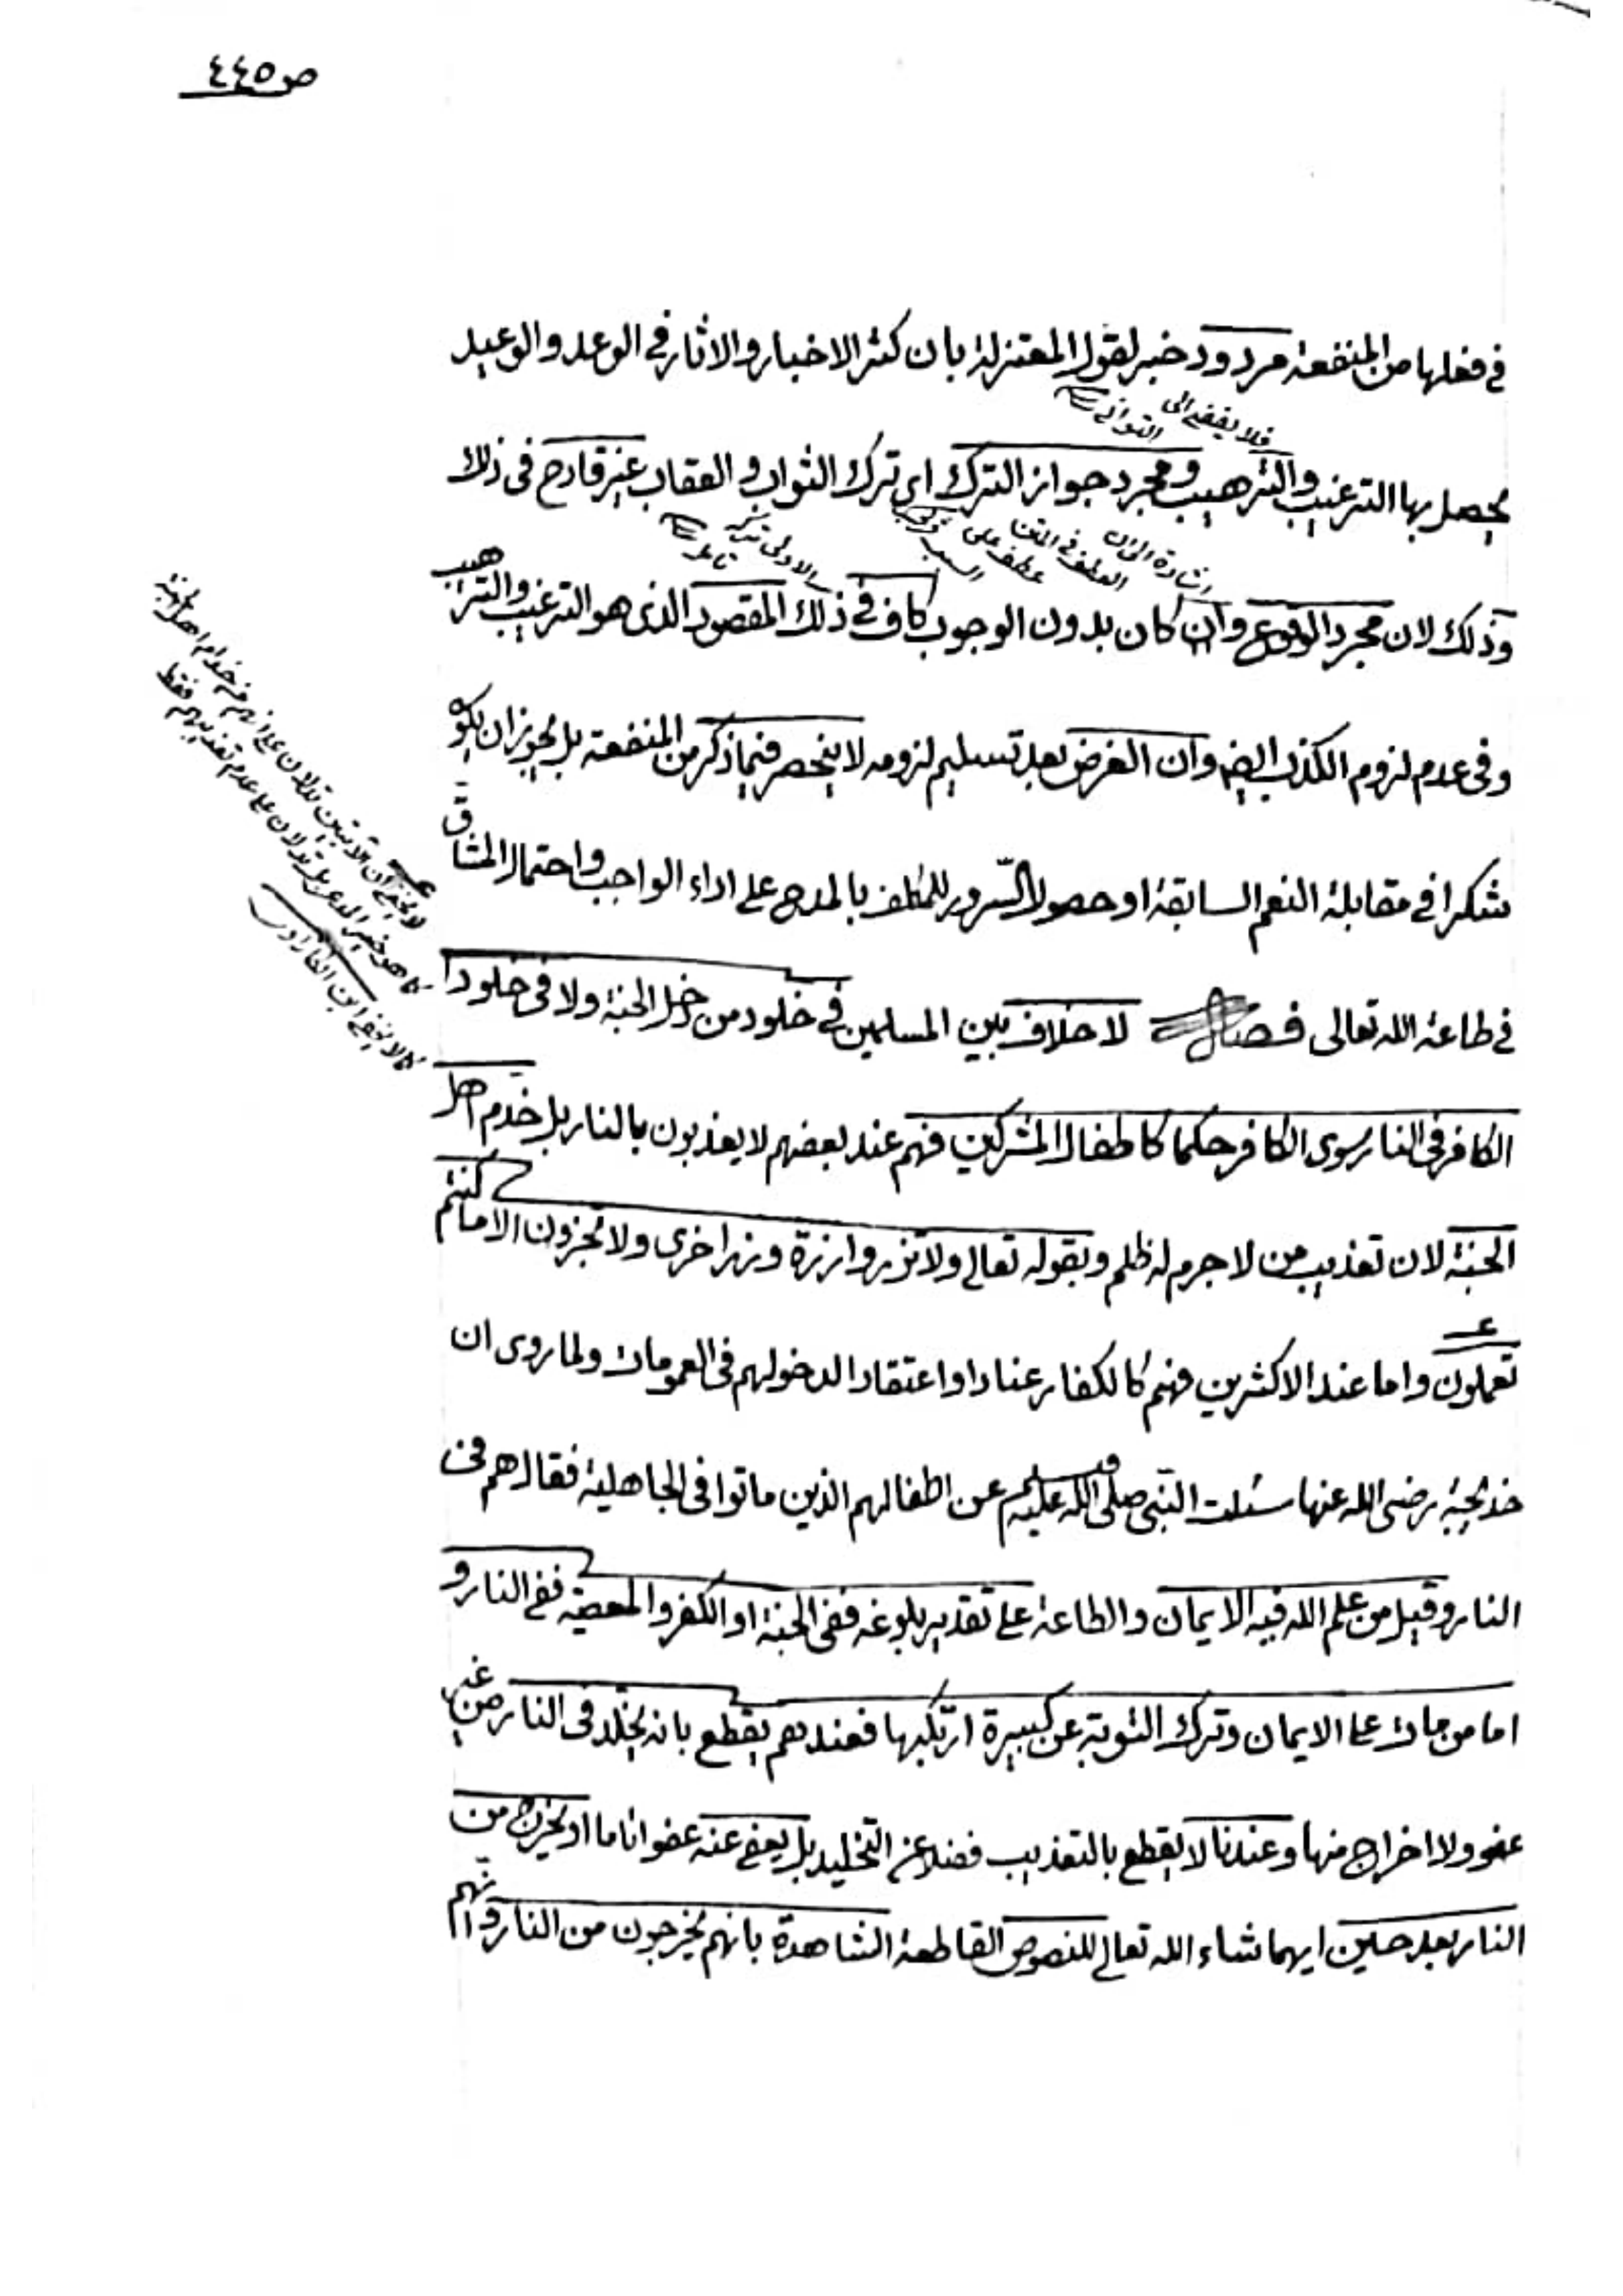 ص ٤٤٥
في فعلها من المنفعة مردود خبر لقول المعتزلة بان كثر الاخبار والاثار في الوعد والوعيد
فلا يفضي الى
التواني
يحصل بها الترغيب والترهيب ومجرد جواز الترك اي ترك الثواب والعقاب غير قادح في ذلك
اشارة الى ان
العطف في المتن
عطف على
السبب
الاولى
تأمل
وذلك لان مجرد الوقوع وان كان بدون الوجوب كاف في ذلك المقصود الذي هو الترغيب والترهيب
وفي عدم لزوم الكذب ايضه وان الغرض بعد تسليم لزومه لا ينحصر فيما ذكر من المنفعة بل يجوز ان يكون
شكرا في مقابلة النعم السابقة او حصول السّرور للمكلف بالمدح على اداء الواجب واحتمال المشاقّ
في طاعة الله تعالى فصل لا خلاف بين المسلمين في خلود من دخل الجنة ولا في خلود ا
الكافر في النار سوى الكافر حكما كاطفال المشركين فهم عند بعضهم لا يعذبون بالنار بل خدم اهل
الجنة لان تعذيب من لا جرم له ظلم وبقوله تعالى ولا تزر وازرة وزر اخرى ولا تجزون الا ما كنتم
تعملون واما عند الاكثرين فهم كالكفار عنادا او اعتقادا لدخولهم في العمومات ولما روى ان
خديجة رضى الله عنها سئلت النّبى صلى الله عليه وسلم عن اطفالهم الذين ماتوا في الجاهلية فقال هم في
النار وقيل من علم الله فيه الايمان والطاعة على تقدير بلوغه ففى الجنة او الكفر والمعصية ففى النار و
اما من مات على الايمان وترك التوبة عن كبيرة ارتكبها فعندهم يقطع بانه يخلّد في النار من غير
عفو ولا اخراج منها وعندنا لا يقطع بالتعذيب فضلا عن التخليد بل يعفى عنه عفوا تاما او يخرج من
النار بعد حين ايهما شاء الله تعالى للنصوص القاطعة الشاهدة بانهم يخرجون من النار وانّهم
لا يخفى ان الآيتين تدلان على انهم من خدام اهل الجنة
كما هو خبر المدعى بل تدلان على عدم تعذيبهم فقط
كما لا يخفى ابن القازادى